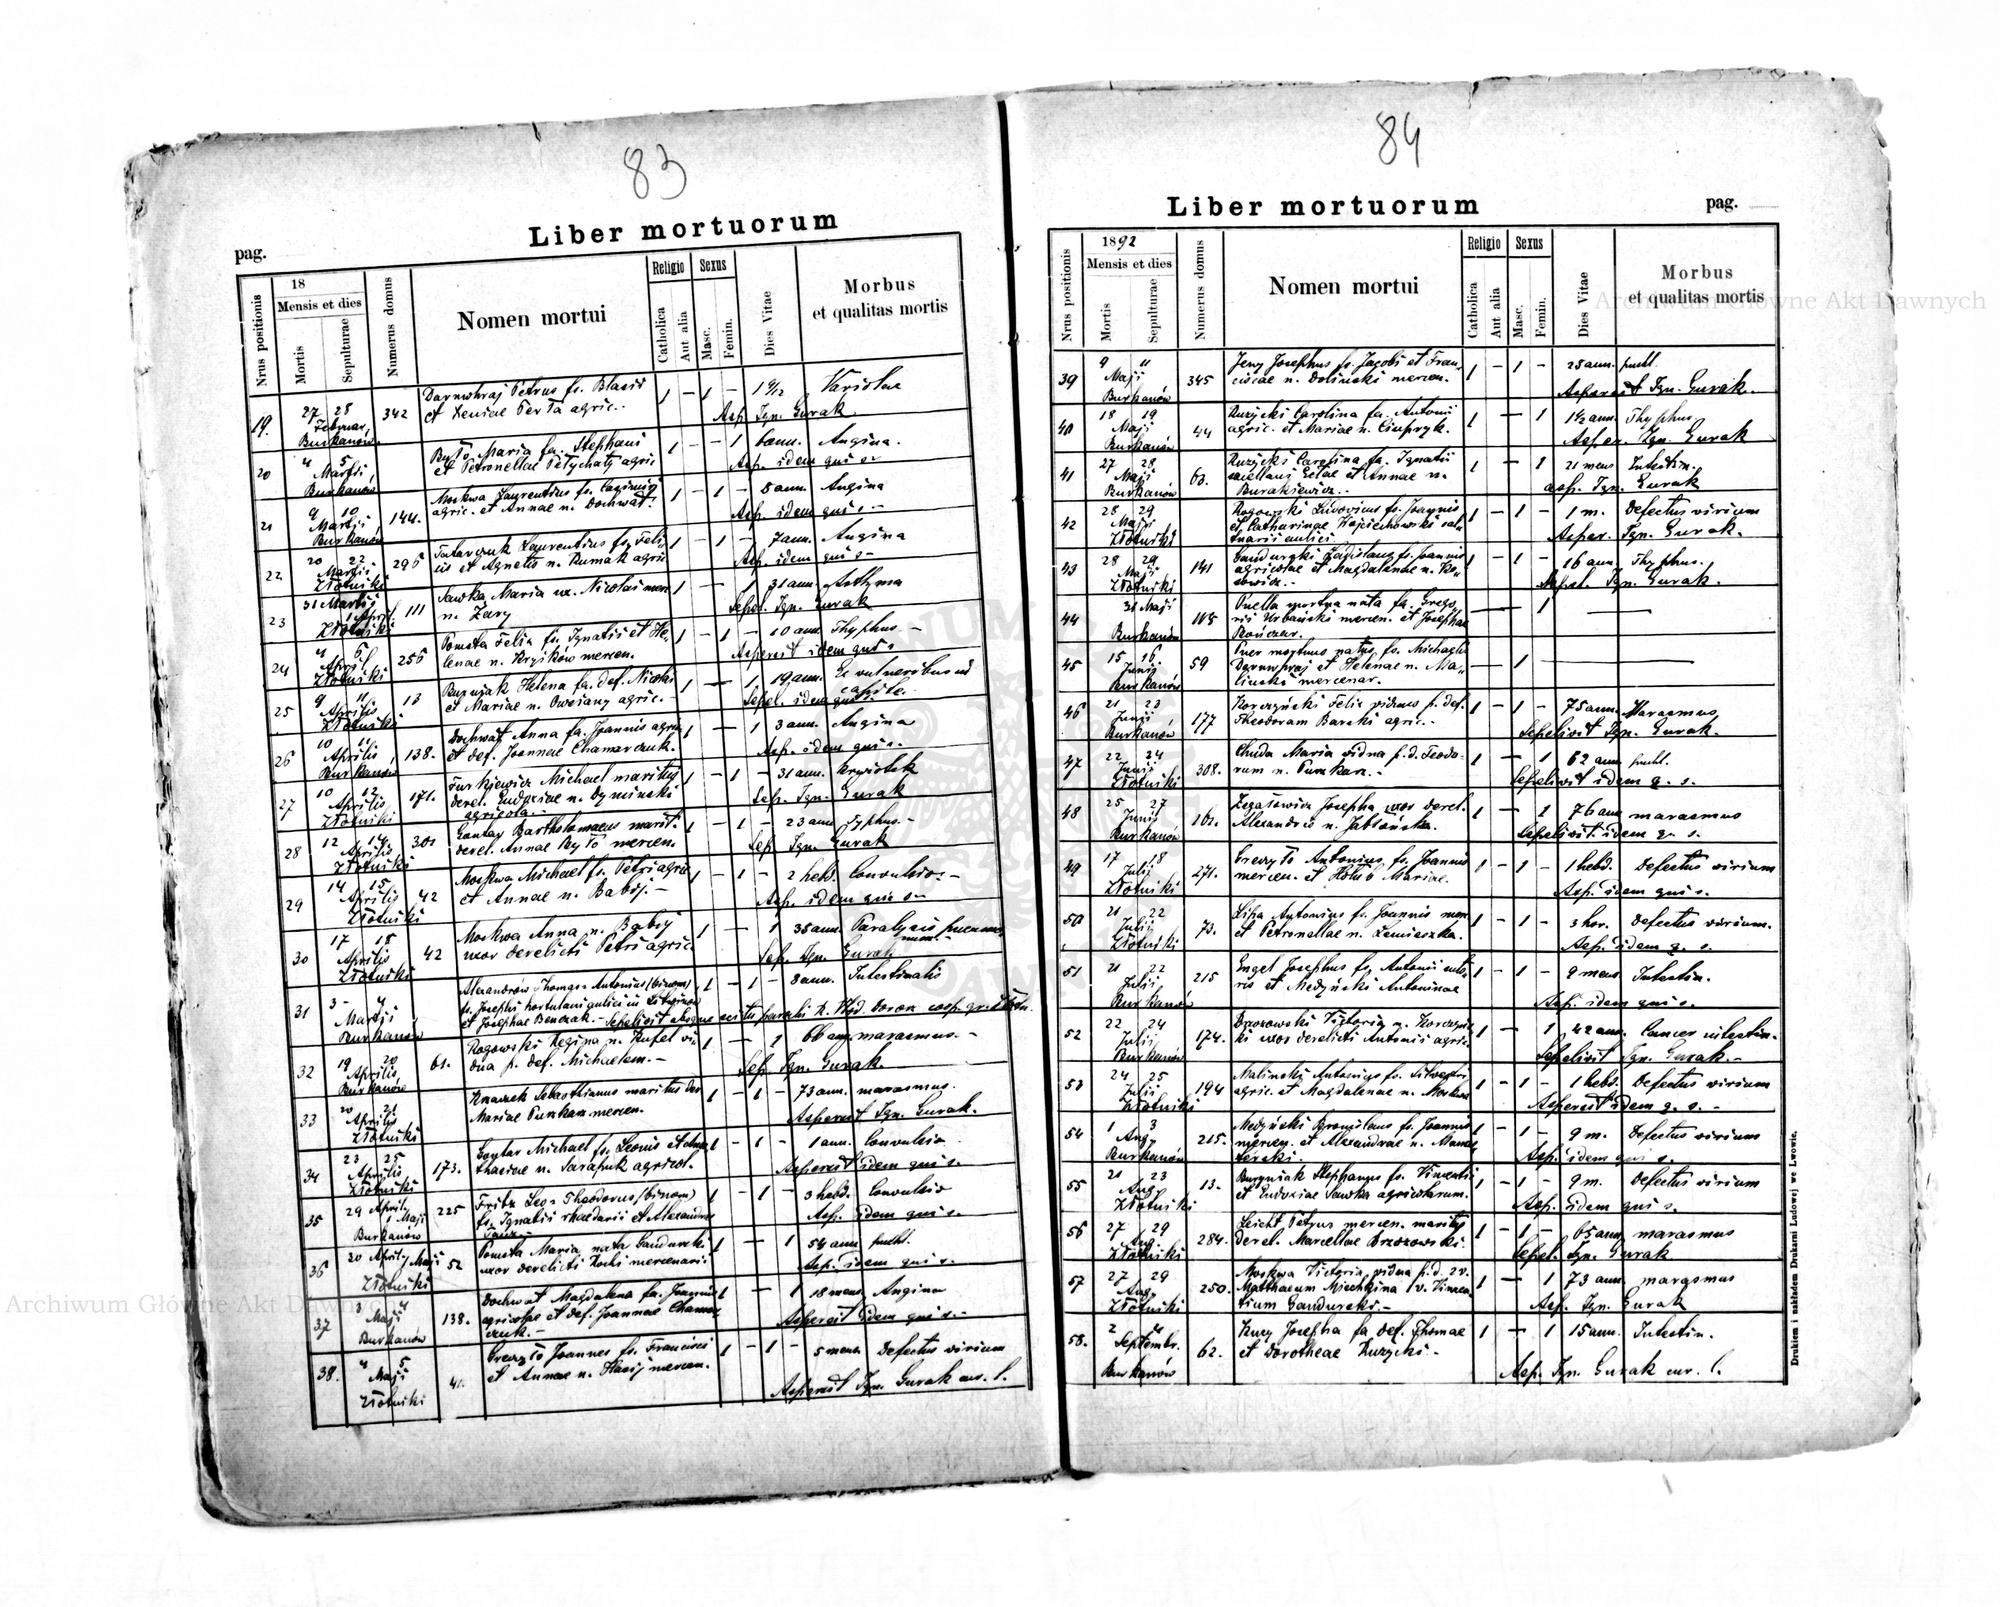 83
Liber mortuorum
pag.
Nrus positionis
18
Mensis et dies
Mortis
Sepulturae
Numerus domus
Nomen mortui
Religio
Catholica
Aut alia
Sexus
Masc.
Femin.
Dies Vitae
Morbus
et qualitas mortis
19. 27 28 342 Petrus fs. Blasii 1 – 1 – Variolae
Februar.
Burkanów
et Xeniae agric.
Asp. Ign. Gurak.
20 4 5 Maria fa. Stephani 1 – – 1 6 ann. Angina.
Martii
Burkanów
et Petronellae agric
Asp. idem qui s–
21 9 10 144. Moskwa Laurentius fs. Casimiri 1 – 1 – 8 ann. Angina
Martii
Burkanów
agric. et Annae n. Dochwat.
Asp. idem qui s–
22 20 22 296 Laurentius fs. Feli- 1 – 1 – 7 ann. Angina
Martii
Złotniki
cis et Agnetis n. Rumak agric
Asp. idem qui s–
23 31 Martii 111 Sawka Maria ux. Nicolai merc 1 – – 1 31 ann. Asthma
1 April
Złotniki
n. Zary
Sepel. Ign. Gurak
24 4 6 256 Pomsta Felix fs. Ignatii et He- 1 – 1 – 10 ann. Thyphus. –
April
Złotniki
lenae n. Kryśków mercen.
Asperсit idem qui s
25 9 11 13 Helena fa. def. Nicolai 1 – – 1 19 ann. Ex vulneribus in
Aprilis
Złotniki
et Mariae n. Owsiany agric.
capite.
Sepel. idem qui s.
26 10 11 138. Dochwat Anna fa. Joannis agric 1 – – 1 3 ann. Angina
Aprilis
Burkanów
et def. Joannae Chamarczuk.
Asp. idem qui s.
27 10 12 171. Turkiewicz Michael maritus 1 – 1 – 31 ann.
Aprilis
Złotniki
derel. Eudoxiae n. Dymiński
agricola. –
Sep. Ign. Gurak
28 12 14 301 Gontay Bartholomaeus marit. 1 – 1 – 23 ann Typhus. –
Aprilis
Złotniki
derel. Annae mercen.
Sep Ign. Gurak
29 14 15 42 Moskwa Michael fs. Petri agric 1 – 1 – 2 hebd. Convulsio. –
Aprilis
Złotniki
et Annae n. Babij. –
Asp. idem qui s–
30 17 18 42 Moskwa Anna n. Babij 1 – – 1 35 ann. Paralysis
Aprilis
Złotniki
uxor derelicti Petri agric.
Sep. Ign. Gurak
31 3 – 4 Alexandrów Thomas = Antonius (binom) 1 – 1 – 8 ann. Intestinalis
Martii
Burkanów
fs. Josephi hortulani aulici in Litwinow
et Josephae Benczak. – Sepelivit absque scitu parochi
32 19 20 61. Rogowski Regina n. Kufel vi- 1 – – 1 66 ann marasmus. –
Aprilis
Burkanów
dua p. def. Michaelem. –
Sep. Ign. Gurak.
33 20 21 Sebasthianus maritus der 1 – 1 – 73 ann. marasmus.
Aprilis
Złotniki
Mariae Punkan mercen.
Aspersit Ign. Gurak.
34 23 25 173. Michael fs. Leonis et Anas- 1 – 1 – 1 ann. Convulsio
Aprilis
Złotniki
thasiae n. Sarapuk agricol.
Aspersit idem qui s.
35 29 April. 225 Fritz Leo = Theodorus (binom) 1 – 1 – 3 hebd. Convulsio
1 Maji
Burkanów
fs. Ignatii rhaedarii et Alexandrae
Asp. idem qui s.
36 20 April 52 Pomsta Maria nata Gandurski 1 – – 1 54 ann
Złotniki
uxor derelicti mercenarii.
Asp. idem qui s.
37 3 4 138. Dochwat Magdalena fa. Joannis 1 – – 1 18 mens. Angina
Maji
Burkanów
agricolae et def. Joannae Chamar-
czuk. –
Aspersit idem qui s. –
38. 4 5 41. Greczyło Joannes fs. Francisci 1 – 1 – 5 mens. Defectus virium
Maji
Złotniki
et Annae n. mercen.
Aspersit Ign. Gurak cur. l.
84
Liber mortuorum
pag.
Nrus positionis
1892
Mensis et dies
Mortis
Sepulturae
Numerus domus
Nomen mortui
Religio
Catholica
Aut alia
Sexus
Masc.
Femin.
Dies Vitae
Morbus
et qualitas mortis
39 9 11 345 Josephus fs. Jacobi et Fran- 1 – 1 – 28 ann.
Maji
Burkanów
ciscae n. Doliński mercen.
Aspersit Ign. Gurak.
40 18 19 44 Ruzycki Carolina fa. Antonii 1 – 1 1½ ann. Thyphus.
Maji
Burkanów
agric. et Mariae n. Ciupryk.
Asper. Ign. Gurak
41 27 28 63. Ruzycki Carolina fa. Ignatii 1 – 1 21 mens Intestin.
Maji
Burkanów
et Annae n.
Burakiewicz. –
asp. Ign. Gurak
42 28 29 Rogowski Ludovicus fs. Joannis 1 – 1 – 1 m. Defectus virium
Maji
Złotniki
et Catharinae Wojciechowski sal-
tuarii aulici
Asper. Ign. Gurak.
43 28 29 141 Gandurski Ladislaus fs. Joannis 1 – 1 – 16 ann. Thyphus.
Maji
Złotniki
agricolae et Magdalenae n. Ko-
sowicz. –
Sepel. Ign. Gurak.
44 31 Maji 118 Puella mortua nata fa. Grego- – 1
Burkanów
rii Urbański mercen. et Josephae
Kończur.
45 15 16 59 Puer mortuus natus fs. Michaelis – 1 –
Junii
Burkanów
et Helenae n. Ma-
linski mercenar.
46 21 23 177 Korczyński Felix viduus p. def. 1 – 1 – 75 ann. Marasmus
Junii
Burkanów
Theodoram Barski agric. –
Sepelivit Ign. Gurak.
47 22 24 308. Chuda Maria vidua p. d. Teodo- 1 – 1 62 ann.
Junii
Złotniki
rum n. Punkan. –
Sepelivit idem q. s.
48 25 27 101. Zegatowicz Josepha uxor derel. 1 – 1 76 ann marasmus
Junii
Burkanów
Alexandri n. Jabłońska.
Sepelivit idem q. s.
49 17 18 271. Greczyło Antonius fs. Joannis 1 – 1 – 1 hebd. Defectus virium
Julij
Złotniki
mercen. et Hołub Mariae.
Asp. idem qui s.
50 21 22 73. Lipa Antonius fs. Joannis mer 1 – 1 – 3 hor. Defectus virium.
Julij
Złotniki
et Petronellae n. Lemieszka.
Asp. idem q. s.
51 21 22 215 Engel Josephus fs. Antonii suto- 1 – 1 – 9 mens Intestin.
Julij
Burkanów
ris et Medyński Antoninae
Asp. idem qui s.
52 22 24 174. Brzozowski Victoria n. Korczyń- 1 – 1 42 ann. Cancer intestin.
Julij
Burkanów
ski uxor derelicti Antonii agric.
Sepelivit Ign. Gurak. –
53 24 25 194 Malinski Antonius fs. Silvestri 1 – 1 – 1 hebd. Defectus virium
Julij
Złotniki
agric. et Magdalenae n. Moskwa
Aspersit idem q. s. –
54 1 3 215. Medyński Bronislaus fs. Joannis 1 – 1 – 9 m. Defectus virium
Aug.
Burkanów
mercen. et Alexandrae n.
Asp. idem qui s.
55 21 23 13. Stephanus fs. Vincentii 1 – 1 – 9 m. Defectus virium
Aug.
Złotniki
et Eudoxiae Sawka agricolarum.
Asp. idem qui s.
56 27 29 284. Leicht Petrus mercen. maritus 1 – 1 – 65 ann marasmus
Aug.
Złotniki
derel. Marcellae Brzozowski.
Sepel. Ign. Gurak
57 27 29 250. Moskwa Victoria vidua p. d. 2v. 1 – 1 73 ann. marasmus
Aug.
Złotniki
Matthaeum Miechkina 1 v. Vincen-
tium Gandurski. –
Asp. Ign. Gurak
58. 2 4 62. Josepha fa def. Thomae 1 – 1 15 ann. Intestin.
Septembr.
Burkanów
et Dorotheae Ruzycki –
Asp. Ign. Gurak cur. l.
Drukiem i nakładem Drukarni Ludowej we Lwowie.
Archiwum Główne Akt Dawnych
Archiwum Główne Akt Dawnych